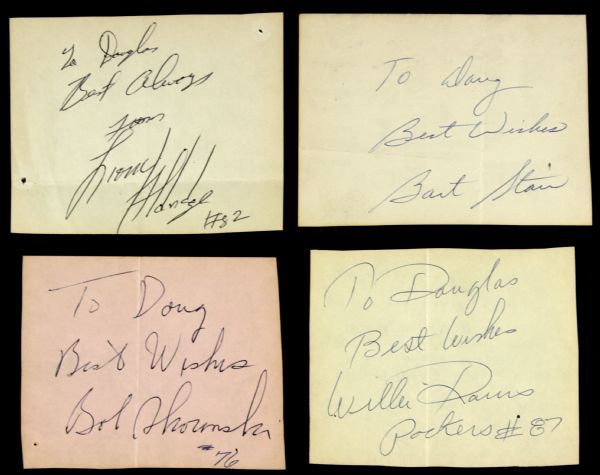 To Douglas
Best Always
from
Lionel Aldridge
#82
To Doug
Best Wishes
Bart Starr
To Doug
Best Wishes
Bob Skoronski
#76
To Douglas
Best Wishes
Willie Davis
Packers #87